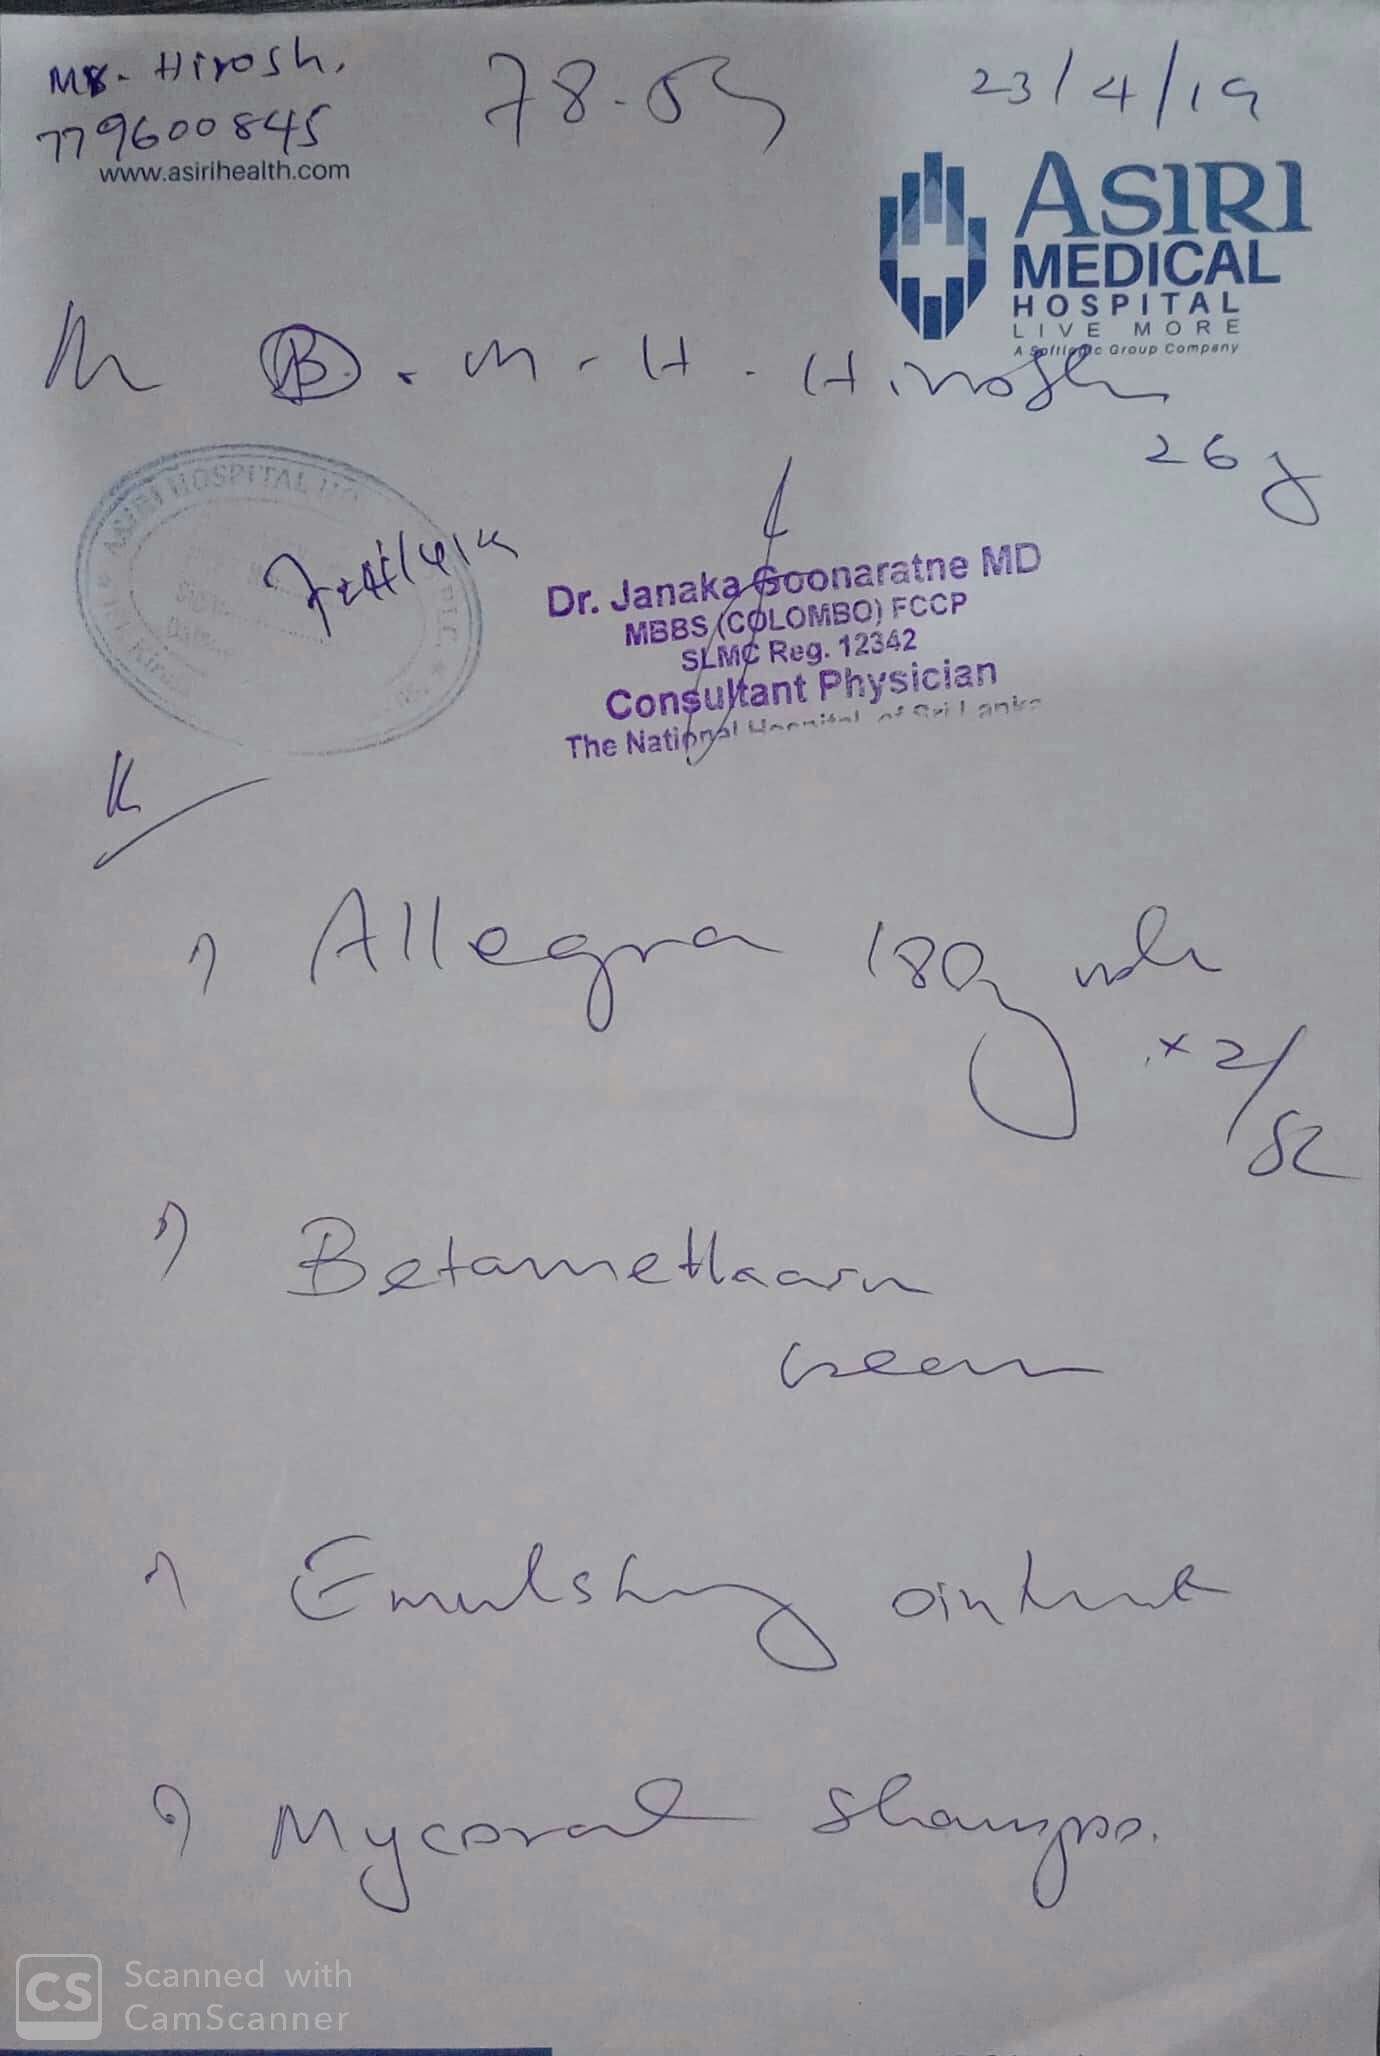 Mr. Hirosh.
779600845
78.05
23/4/19
www.asirihealth.com
ASIRI
MEDICAL
HOSPITAL
LIVE MORE
A Softlogic Group Company
B. M. H. Hirosh
26 y
ASIRI HOSPITAL
Dr. Janaka Goonaratne MD
MBBS (COLOMBO) FCCP
SLMC Reg. 12342
Consultant Physician
The National Hospital of Sri Lanka
Allegra 180
x 2/52
Betamethason
cream
Emulsifying ointment
Mycoral shampoo.
CS
Scanned with
CamScanner